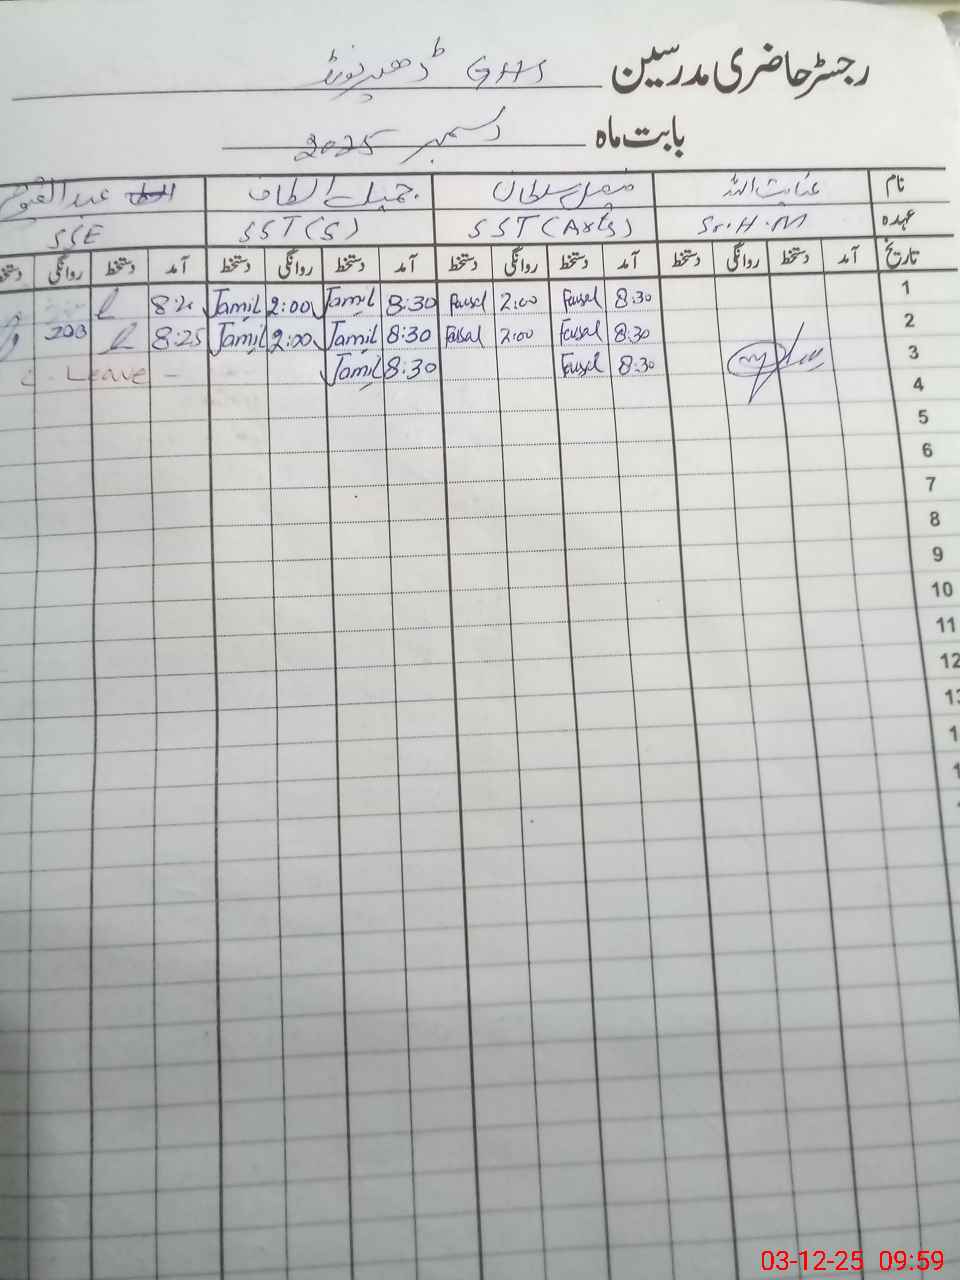 رجسٹر حاضری مدرسین GHS
بابت ماہ دسمبر 2025
نام عنایت اللہ فیصل سلطان جمیل الطاف عبد
عہدہ Sr.H.M SST(Arts) SST(S) SSE
تاریخ آمد دستخط روانگی دستخط آمد دستخط روانگی دستخط آمد دستخط روانگی دستخط آمد دستخط روانگی دستخط
1 8:30 Faisal 2:00 Faisal 8:30 Jamil 2:00 Jamil
2 8:30 Faisal 2:00 Faisal 8:30 Jamil 2:00 Jamil 8:25 200
3 8:30 Faisal 8:30 Jamil Leave
4
5
6
7
8
9
10
11
12
03-12-25 09:59